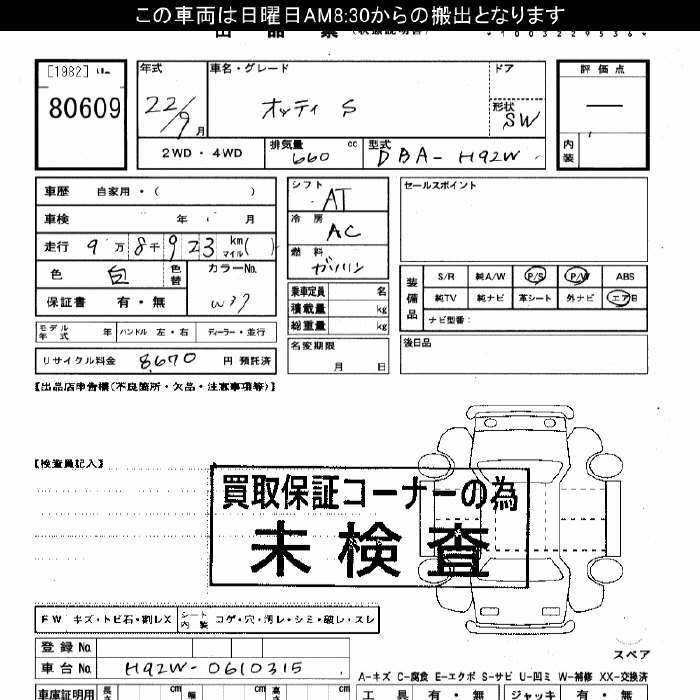 この車両は日曜日AM8:30からの搬出となります
出 品 票 (状態説明書)
*1003229536*
[1982]
80609
年式
22/9月
車名・グレード
オッティ S
ドア
形状
SW
評価点
—
内装
2WD・4WD
排気量 cc
660
型式
DBA-H92W
車歴 自家用・( )
車検 年 月
走行 9万8千923 km マイル( )
色 白 色替
カラーNo.
W37
保証書 有・無
モデル年式 年 ハンドル 左・右 ディーラー・並行
リサイクル料金 8,670 円 預託済
シフト
AT
冷房
AC
燃料
ガソリン
乗車定員 名
積載量 kg
総重量 kg
名変期限
月 日
セールスポイント
装備品
S/R 純A/W P/S P/W ABS
純TV 純ナビ 革シート 外ナビ エアB
ナビ型番:
後日品
【出品店申告欄(不良箇所・欠品・注意事項等)】
【検査員記入】
買取保証コーナーの為
未検査
FW キズ・トビ石・割レX シート内装 コゲ・穴・汚レ・シミ・破レ・スレ
登録No.
車台No. H92W-0610315
スペア
A-キズ C-腐食 E-エクボ S-サビ U-凹ミ W-補修 XX-交換済
車庫証明用 長さ cm 幅 cm 高さ cm
工具 有・無 ジャッキ 有・無